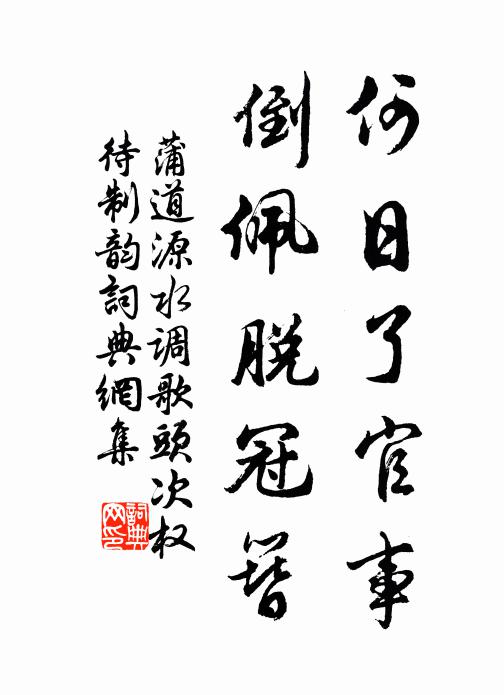 何日了官事
倒佩脱冠簪
蒲道源水调歌頭次权
待制韵詞典網集
詞典网印